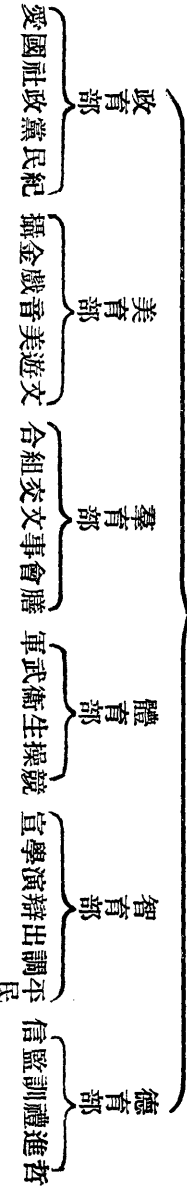 政育部
愛國社政黨民紀
美育部
攝金戲音美遊文
羣育部
合組交文事會膳
體育部
軍武衛生操競
智育部
宣學演辯出調平民
德育部
信監訓禮進哲